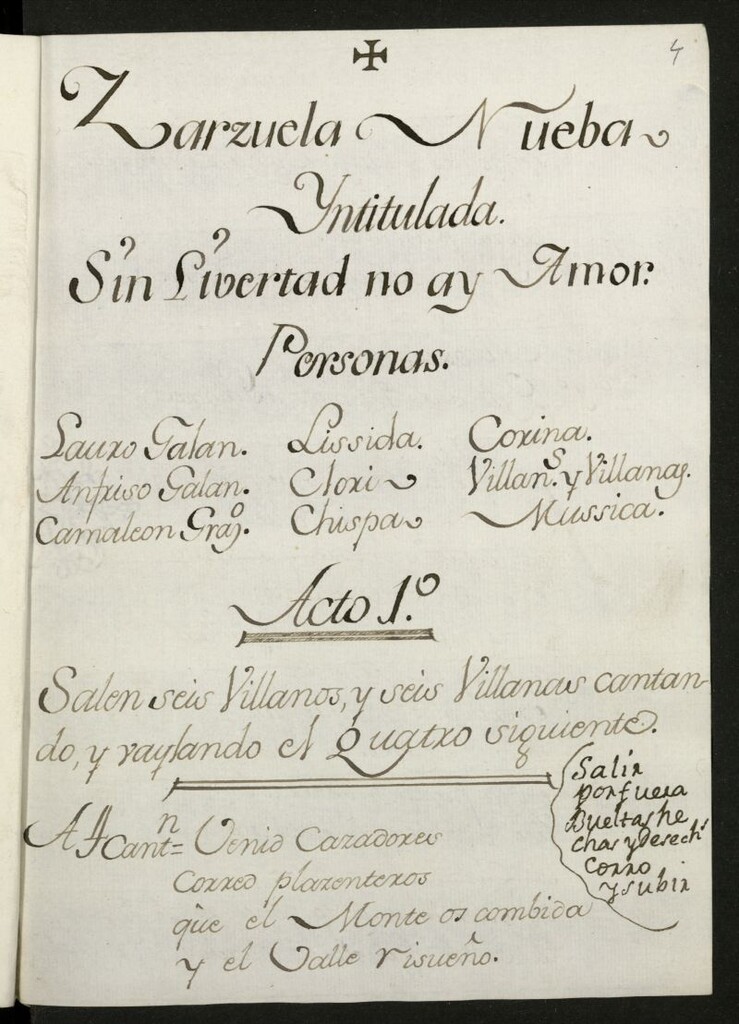 4
Zarzuela Nueba
Yntitulada.
Sin Livertad no ay Amor.
Personas.
Lauro Galan. Lissida. Corina.
Anfriso Galan. Clori Villan.s y Villanas.
Camaleon Graz.o Chispa Mussica.
Acto 1.º
Salen seis Villanos, y seis Villanas cantan-
do, y vaylando el Quatro siguiente.
Salir
por fuera
Bueltas he
chas y desech.s
Corro
y subir
A 4 Cant.n = Venid Cazadores
Corred plazenteros
que el Monte os combida
y el Valle risueño.